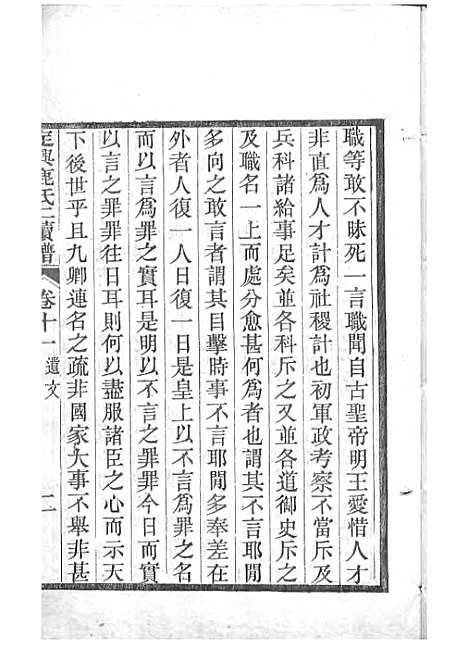 職等敢不昧死一言職聞自古聖帝明王愛惜人才
非直爲人才計爲社稷計也初軍政考察不當斥及
兵科諸給事足矣並各科斥之又並各道御史斥之
及職名一上而處分愈甚何爲者也謂其不言耶閒
多向之敢言者謂其目擊時事不言耶閒多奉差在
外者人復一人日復一日是皇上以不言爲罪之名
而以言爲罪之實耳是明以不言之罪罪今日而實
以言之罪罪往日耳則何以盡服諸臣之心而示天
下後世乎且九卿連名之疏非國家大事不舉非甚
定興鹿氏二續譜 卷十一 遺文 二